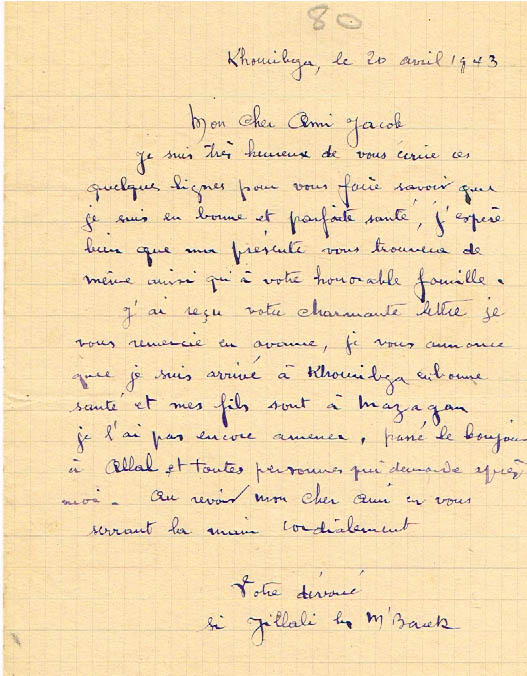 80
Khouribga, le 20 avril 1943
Mon cher Ami Jacob
Je suis très heureux de vous écrire ces
quelques lignes pour vous faire savoir que
je suis en bonne et parfaite santé, j'espère
bien que ma présente vous trouvera de
même ainsi qu'à votre honorable famille.
J'ai reçu votre charmante lettre je
vous remercie en avance, je vous annonce
que je suis arrivé à Khouribga en bonne
santé et mes fils sont à Mazagan
je l'ai pas encore amener, passé le bonjour
à Allal et toutes personnes qui demande après
moi. Au revoir mon cher ami en vous
serrant la main cordialement
Votre dévoué
si Jillali M'Barek